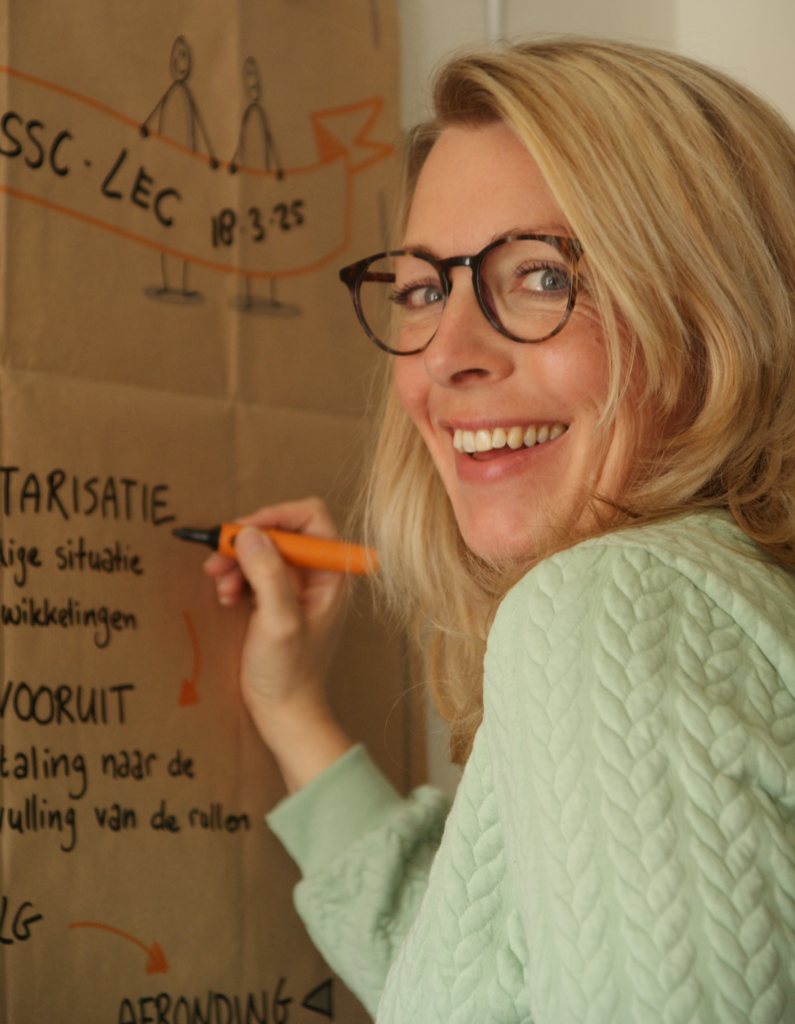 SSC · LEC 18·3·25
TARISATIE
lige situatie
wikkelingen
VOORUIT
taling naar de
vulling van de rollen
LG
AFRONDING